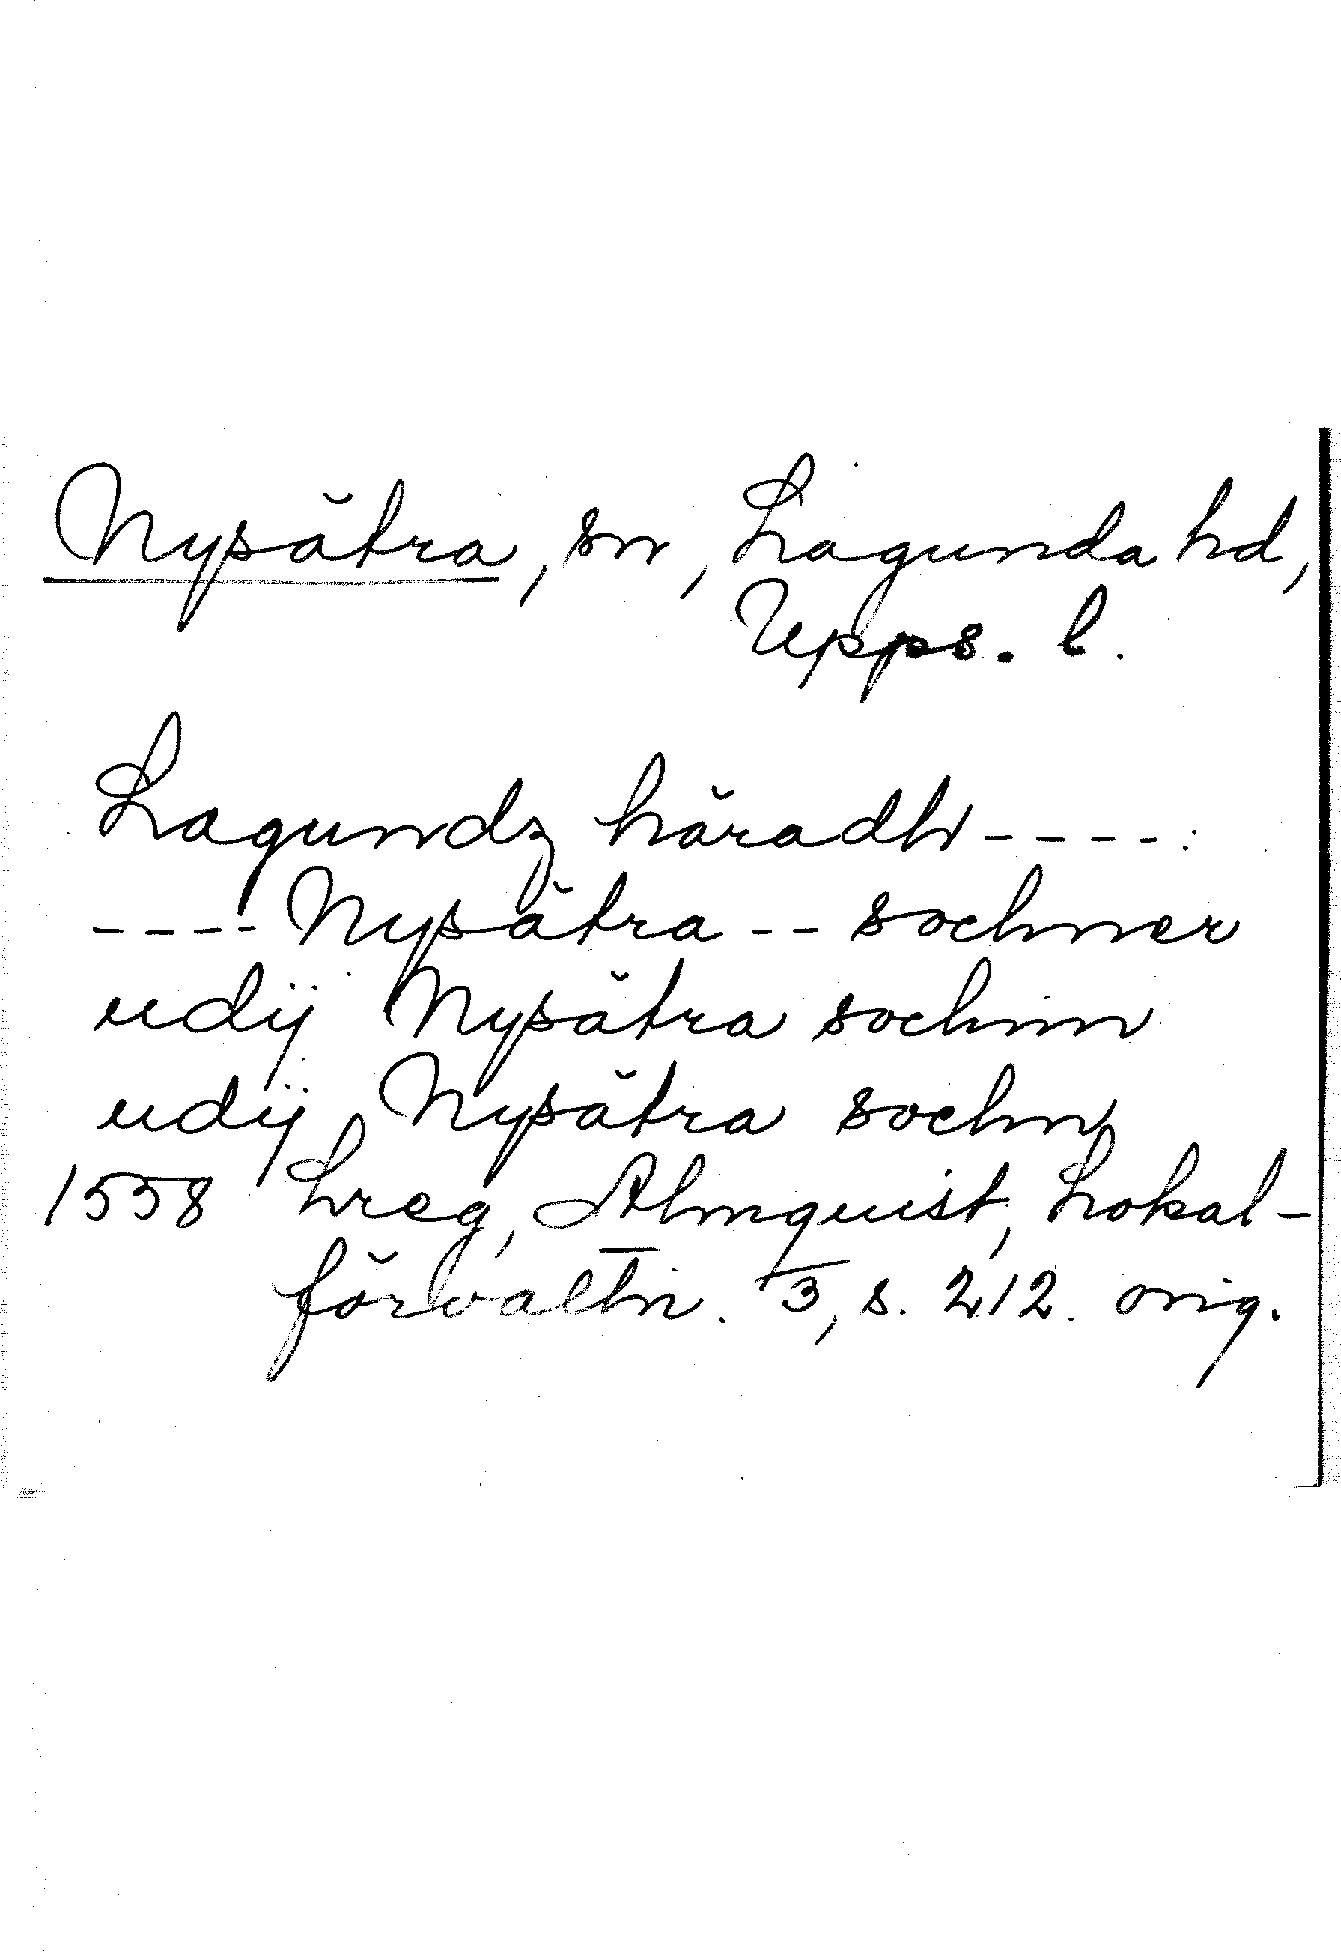 Nysätra, sn, Lagunda hd,
Upps. l.
Lagundz häradh ----:
---- Nysätra -- sochner
udij Nysätra sochnn
udij Nysätra sochn
1558 Lreg, Almquist, Lokal-
förvaltn. 3, s. 212. orig.